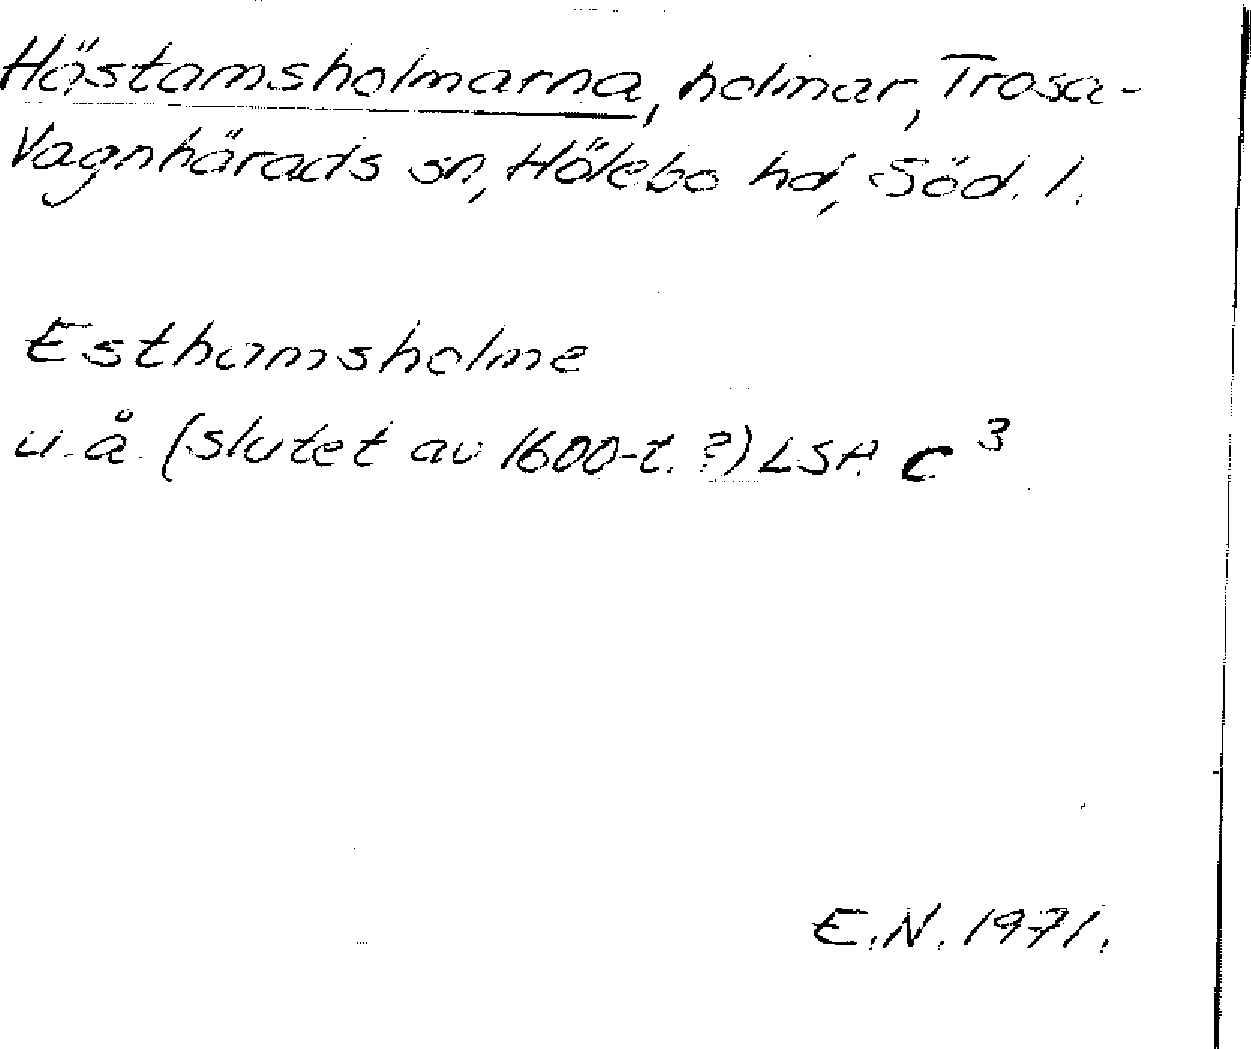 Höstamsholmarna, holmar, Trosa-
Vagnhärads sn, Hölebo hd, Söd. l.
Esthamsholme
u. å. (slutet av 1600-t. ?) LSA C 3
E.N. 1971.